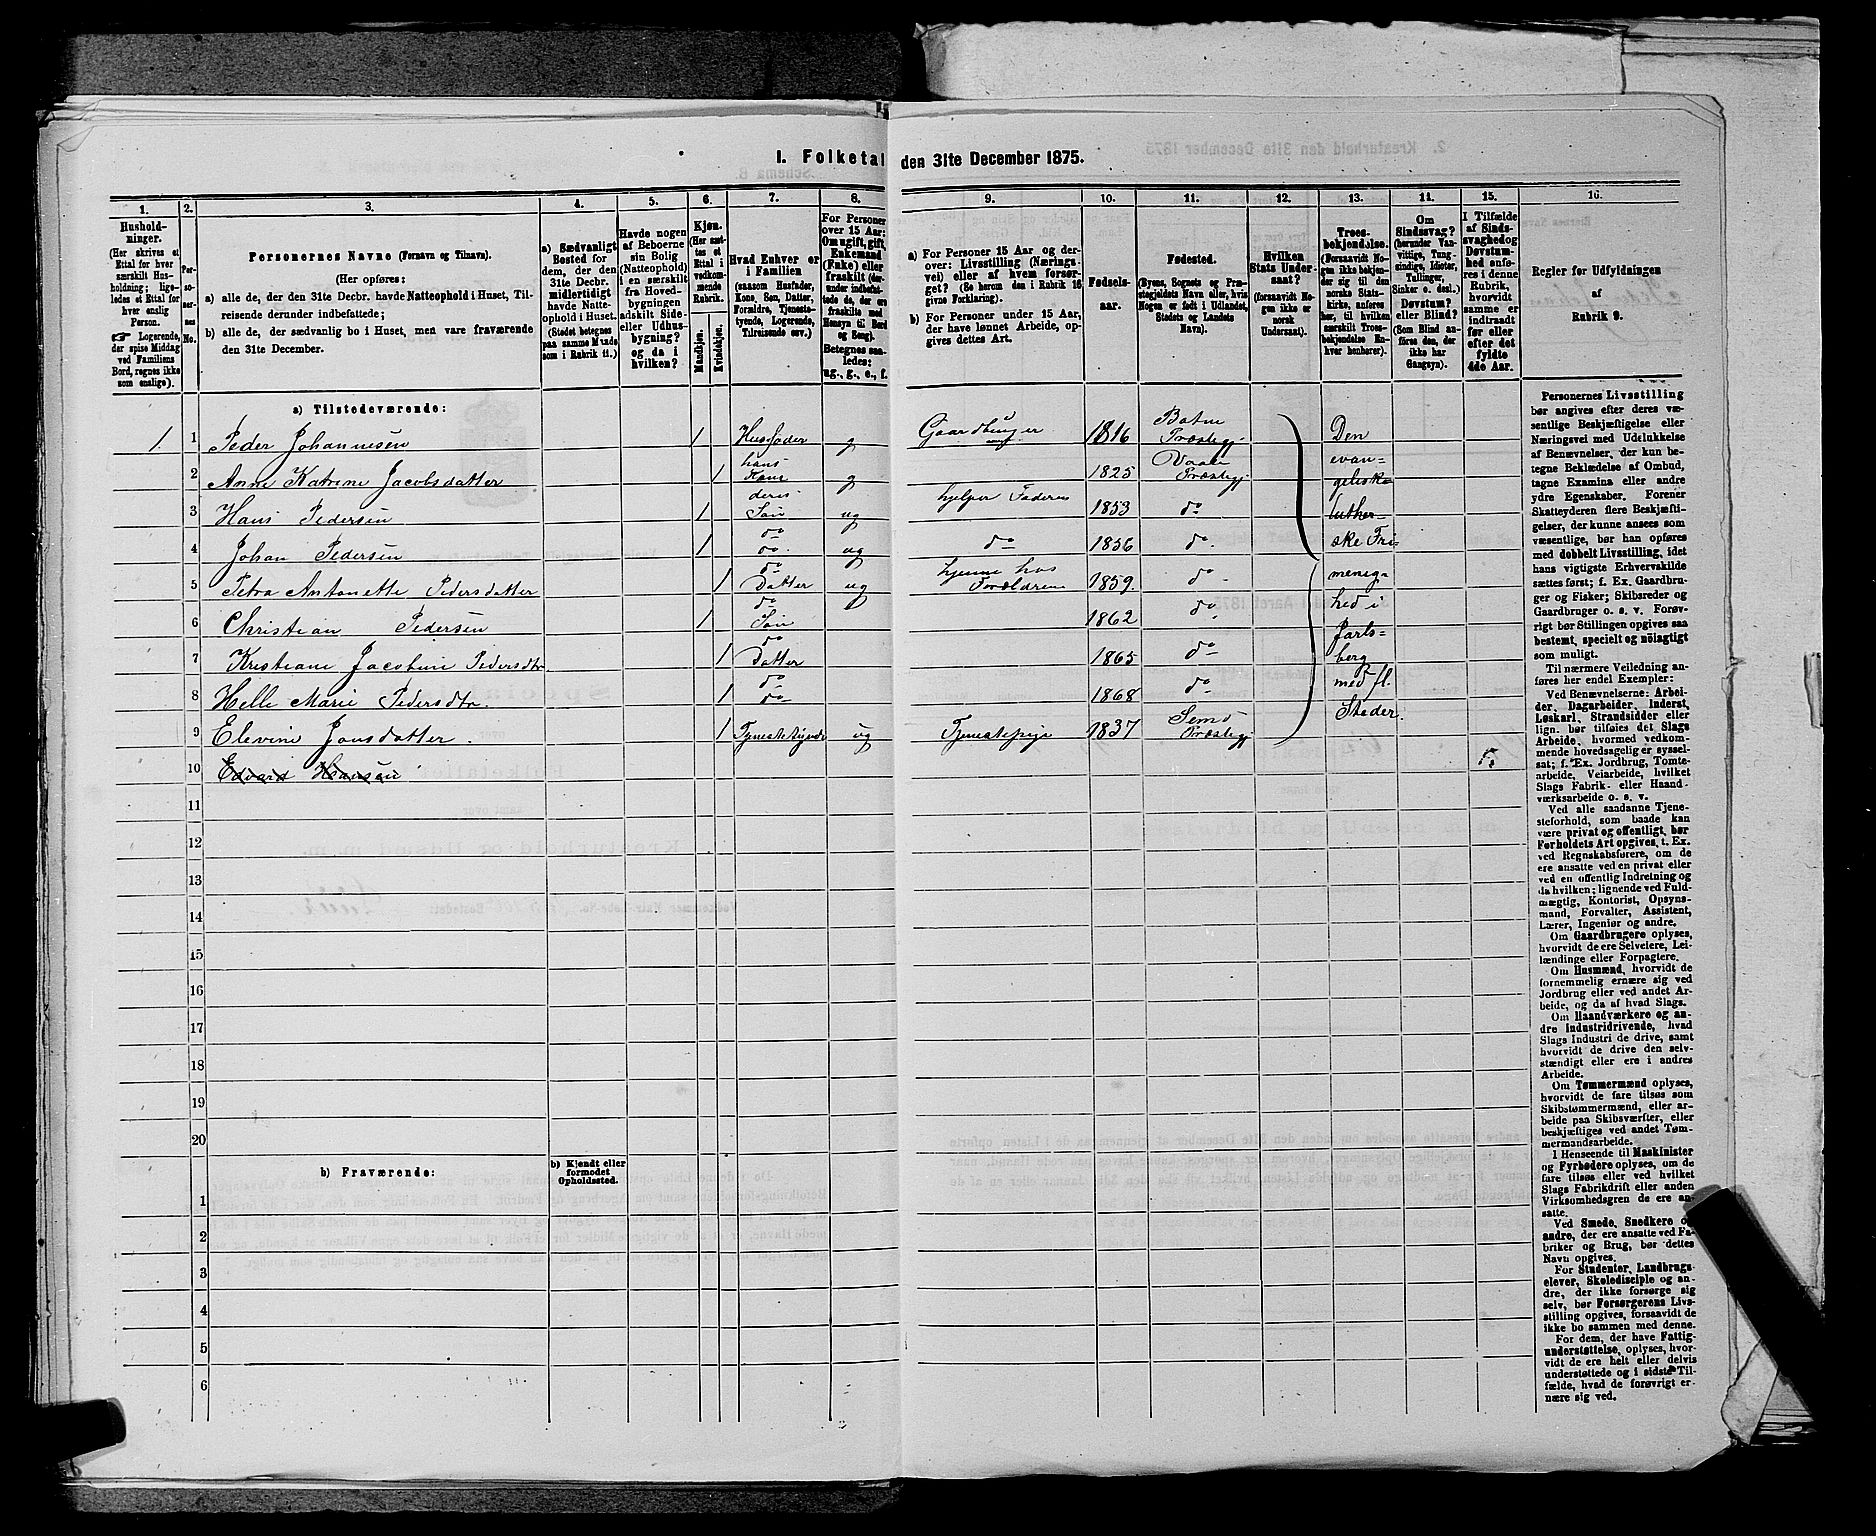 I. Folketal den 31te December 1875.
1. 2. 3. 4. 5. 6. 7. 8. 9. 10. 11. 12. 13. 14. 15. 16.
Hushold-
ninger.
(Her skrives et
Ettal for hver
særskilt Hus-
holdning; lige-
ledes et Ettal for
hver enslig
Person.
Logerende,
der spise Middag
ved Familiens
Bord, regnes ikke
som enslige).
Per-
so-
ner-
nes
No.
Personernes Navne (Fornavn og Tilnavn).
(Her opføres:
a) alle de, der den 31te Decbr. havde Natteophold i Huset, Til-
reisende derunder indbefattede;
b) alle de, der sædvanlig bo i Huset, men vare fraværende
den 31te December.
a) Sædvanligt
Bosted for
dem, der den
31te Decbr.
midlertidigt
havde Natte-
ophold i Huset.
(Stedet betegnes
paa samme Maade
som i Rubrik 11.)
Havde nogen
af Beboerne
sin Bolig
(Natteophold)
i en særskilt
fra Hoved-
bygningen
adskilt Side-
eller Udhus-
bygning?
og da i
hvilken?
Kjøn.
(Her sæt-
tes et
Ettal i
vedkom-
mende
Rubrik.
Mandkjøn.
Kvindekjøn.
Hvad Enhver er
i Familien
(saasom Husfader,
Kone, Søn, Datter,
Forældre, Tjeneste-
tyende, Logerende,
Tilreisende osv.)
For Personer
over 15 Aar:
Om ugift, gift,
Enkemand
(Enke) eller
fraskilt (der-
under indbefat-
tede de, der ere
fraskilte med
Hensyn til Bord
og Seng).
Betegnes saa-
ledes:
ug., g., e., f.
a) For Personer 15 Aar og der-
over: Livsstilling (Nærings-
vei) eller af hvem forsør-
get? (Se herom den i Rubrik 16
givne Forklaring).
b) For Personer under 15 Aar,
der have lønnet Arbeide, op-
gives dettes Art.
Fødsels-
aar.
Fødested.
(Byens, Sognets og Præ-
stegjeldets Navn eller, hvis
Nogen er født i Udlandet,
Stedets og Landets
Navn).
Hvilken
Stats Under-
saat?
(forsaavidt No-
gen ikke er
norsk
Undersaat).
Troes-
bekjendelse.
(Forsaavidt No-
gen ikke bekjen-
der sig til den
norske Stats-
kirke, anføres
her, til hvilken
særskilt Troes-
bekjendelse En-
hver henhører).
Om
Sindssvag?
(herunder Van-
vittige, Tung-
sindige, Idioter,
Tullinger,
Sinker o. desl.)
Døvstum?
eller Blind?
(Som Blind an-
føres den, der
ikke har
Gangsyn).
I Tilfælde
af Sinds-
svaghed og
Døvstum-
hed anfø-
res i denne
Rubrik,
hvorvidt
samme er
indtraadt
før eller
efter det
fyldte
4de Aar.
Regler for Udfyldningen
af
Rubrik 9.
a) Tilstedeværende:
1. 1 Peder Johannesen 1 Husfader g Gaardbruger 1816 Botne Præstegj. Den
2 Anne Katrine Jacobsdatter 1 hans Kone g 1825 Vaale Præstegj. evan-
3 Hans Pedersen 1 deres Søn ug hjelper Faderen 1853 do geliske
4 Johan Pedersen 1 do do ug do 1856 do luther-
5 Petra Antonette Pedersdatter 1 do Datter ug hjemme hos Forældrene 1859 do ske Fri-
6 Christian Pedersen 1 do Søn 1862 do menig-
7 Kristiane Jacobine Pedersdtr 1 do Datter 1865 do hed i
8 Helle Marie Pedersdtr. 1 do do 1868 do Jarls-
9 Elevine Jonsdatter. 1 Tjenestetyende ug Tjenestepige 1837 Semb Præstegj berg
med fl.
Steder.
10 Edvard Hansen
11
12
13
14
15
16
17
18
19
20
b) Fraværende:
b) Kjendt eller
formodet
Opholdssted.
1
2
3
4
5
6
Personernes Livsstilling
bør angives efter deres væ-
sentlige Beskjæftigelse eller
Næringsvei med Udelukkelse
af Benævnelser, der kun be-
tegne Beklædelse af Ombud,
tagne Examina eller andre
ydre Egenskaber. Forener
Skatteyderen flere Beskjæfti-
gelser, der kunne ansees som
væsentlige, bør han opføres
med dobbelt Livsstilling, idet
hans vigtigste Erhvervskilde
sættes først; f. Ex. Gaardbru-
ger og Fisker; Skibsreder og
Gaardbruger o. s. v. Forøv-
rigt bør Stillingen opgives saa
bestemt, specielt og nøiagtigt
som muligt.
Til nærmere Veiledning an-
føres her endel Exempler:
Ved Benævnelserne: Arbei-
der, Dagarbeider, Inderst,
Løskarl, Strandsidder eller
lign. bør tilføies det Slags
Arbeide, hvormed vedkom-
mende hovedsagelig er syssel-
sat; f. Ex. Jordbrug, Tomte-
arbeide, Veiarbeide, hvilket
Slags Fabrik- eller Haand-
værksarbeide o. s. v.
Ved alle saadanne Tjene-
steforhold, som baade kan
være privat og offentligt, bør
Forholdets Art opgives, t. Ex.
ved Regnskabsførere, om de
ere ansatte ved en privat eller
ved en offentlig Indretning og
da hvilken; lignende ved Fuld-
mægtig, Kontorist, Opsyns-
mand, Forvalter, Assistent,
Lærer, Ingeniør og andre.
Om Gaardbrugere oplyses,
hvorvidt de ere Selveiere, Lei-
lændinge eller Forpagtere.
Om Husmænd, hvorvidt de
fornemmelig ernære sig ved
Jordbrug eller ved andet Ar-
beide, og da af hvad Slags.
Om Haandværkere og an-
dre Industridrivende, hvad
Slags Industri de drive, samt
hvorvidt de drive den selv-
stændigt eller ere i andres
Arbeide.
Om Tømmermænd oplyses,
hvorvidt de fare tilsøs som
Skibstømmermænd, eller ar-
beide paa Skibsværfter, eller
beskjæftiges ved andet Tøm-
mermandsarbeide.
I Henseende til Maskinister
og Fyrbødere oplyses, om de
fare tilsøs eller ved hvilket
Slags Fabrikdrift eller anden
Virksomhedsgren de ere an-
satte.
Ved Smede, Snedkere og
andre, der ere ansatte ved Fa-
briker og Brug, bør dettes
Navn opgives.
For Studenter, Landbrugs-
elever, Skoledisciple og an-
dre, der ikke forsørge sig
selv, bør Forsørgerens Livs-
stilling opgives, forsaavidt de
ikke bo sammen med denne.
For dem, der have Fattig-
understøttelse, oplyses, hvor-
vidt de ere helt eller delvis
understøttede og i sidste Til-
fælde, hvad de forøvrigt er-
nære sig ved.